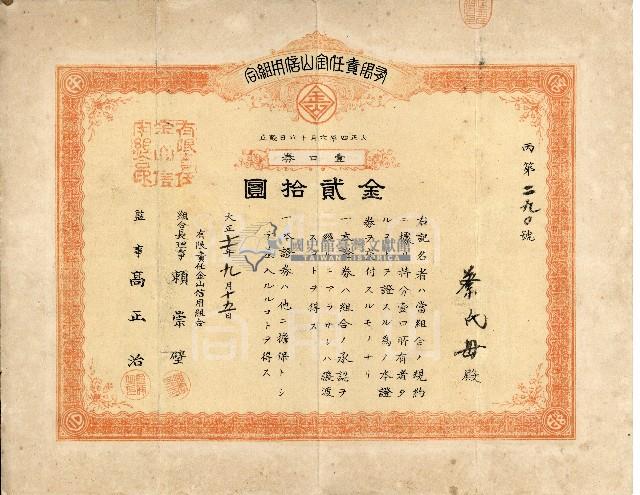 有限責任金山信用組合
大正四年六月十六日設立
壹口券
金貳拾圓
丙第二九〇號
蔡氏母殿
右記名者ハ當組合ノ規約
ニ據リ持分壹口所有者タ
ルコトヲ證スル為メ本證
券ヲ交付スルモノナリ
一本證券ハ組合ノ承認ヲ
經ルニアラサレハ讓渡
スコトヲ得ス
一本證券ハ他ニ擔保トシ
テ差入ルルコトヲ得ス
大正十一年九月十五日
有限責任金山信用組合
組合長理事 賴崇壁
監事 高正治
國史館臺灣文獻館